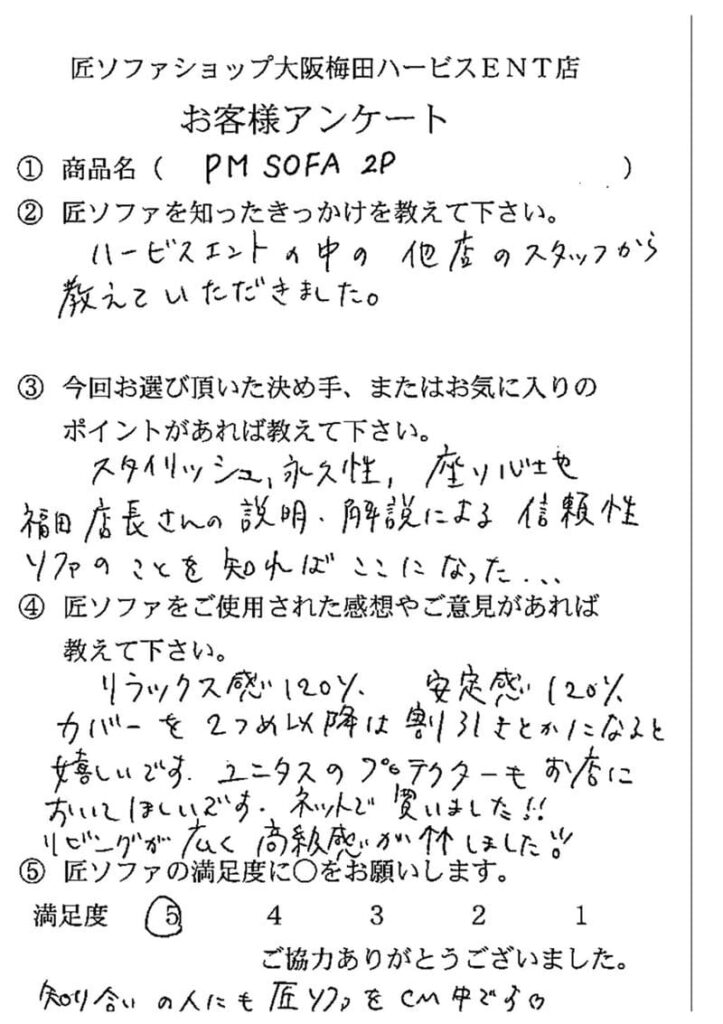 匠ソファショップ大阪梅田ハービスENT店
お客様アンケート
① 商品名 ( PM SOFA 2P )
② 匠ソファを知ったきっかけを教えて下さい。
ハービスエントの中の 他店のスタッフから
教えていただきました。
③ 今回お選び頂いた決め手、またはお気に入りの
ポイントがあれば教えて下さい。
スタイリッシュ, 永久性, 座り心地
福田店長さんの説明・解説による信頼性
ソファのことを知ればここになった...
④ 匠ソファをご使用された感想やご意見があれば
教えて下さい。
リラックス感120% 安定感120%
カバーを2つめ以降は割引きとかになると
嬉しいです. ユニタスのプロテクターもお店に
おいてほしいです. ネットで買いました!!
リビングが広く高級感が しました!!
⑤ 匠ソファの満足度に○をお願いします。
満足度 5 4 3 2 1
ご協力ありがとうございました。
知り合いの人にも匠ソファをCM中です♡